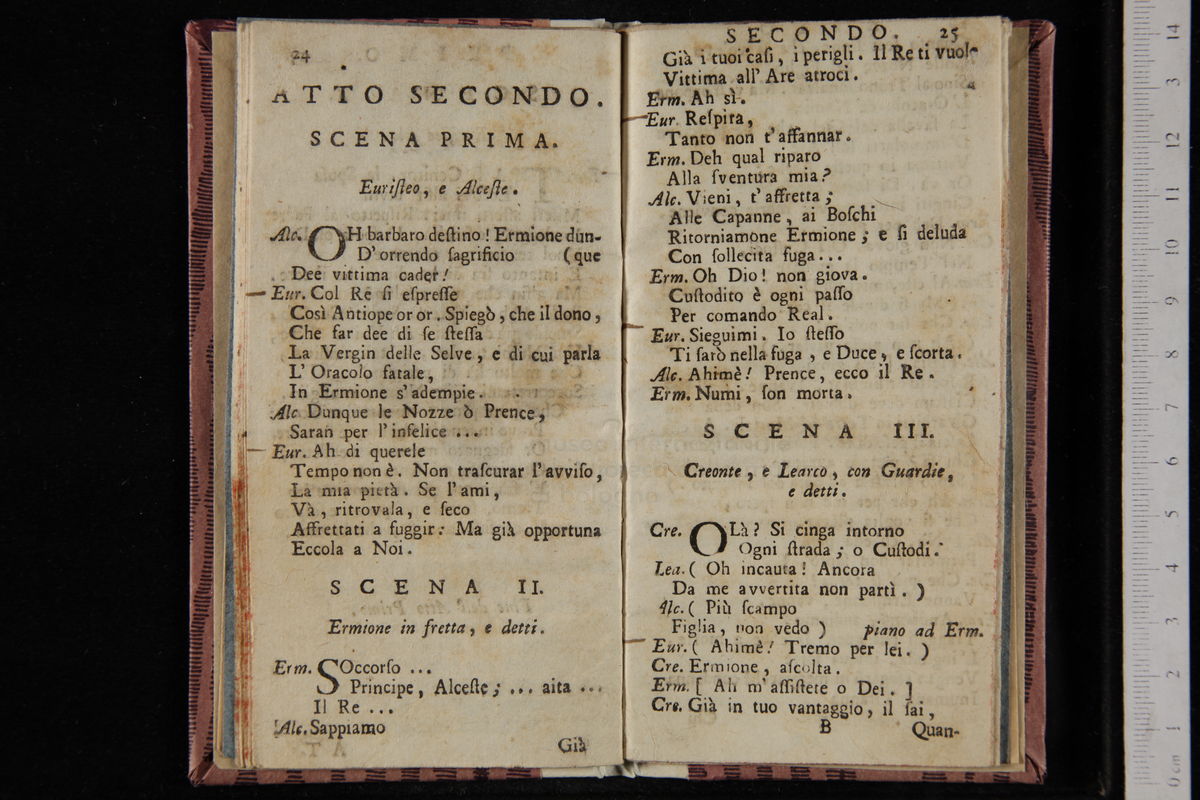 24
ATTO SECONDO.
SCENA PRIMA.
Euriſteo, e Alceſte.
Alc. OH barbaro deſtino! Ermione dun-
D'orrendo ſagrificio (que
Dee vittima cader!
Eur. Col Re ſi eſpreſſe
Così Antiope or or. Spiegò, che il dono,
Che far dee di ſe ſteſſa
La Vergin delle Selve, e di cui parla
L'Oracolo fatale,
In Ermione s'adempie.
Alc Dunque le Nozze ò Prence,
Saran per l'infelice ...
Eur. Ah di querele
Tempo non è. Non traſcurar l'avviſo,
La mia pietà. Se l'ami,
Và, ritrovala, e ſeco
Affrettati a fuggir: Ma già opportuna
Eccola a Noi.
SCENA II.
Ermione in fretta, e detti.
Erm. SOccorſo ...
Principe, Alceſte; ... aita ...
Il Re ...
Alc. Sappiamo
Già
SECONDO. 25
Già i tuoi caſi, i perigli. Il Re ti vuole
Vittima all'Are atroci.
Erm. Ah sì.
Eur. Reſpira,
Tanto non t'affannar.
Erm. Deh qual riparo
Alla ſventura mia?
Alc. Vieni, t'affretta;
Alle Capanne, ai Boſchi
Ritorniamone Ermione; e ſi deluda
Con ſollecita fuga...
Erm. Oh Dio! non giova.
Cuſtodito è ogni paſſo
Per comando Real.
Eur. Sieguimi. Io ſteſſo
Ti ſarò nella fuga, e Duce, e ſcorta.
Alc. Ahimè! Prence, ecco il Re.
Erm. Numi, ſon morta.
SCENA III.
Creonte, e Learco, con Guardie,
e detti.
Cre. OLà? Si cinga intorno
Ogni ſtrada; o Cuſtodi.
Lea. ( Oh incauta! Ancora
Da me avvertita non partì. )
Alc. ( Più ſcampo
Figlia, non vedo ) piano ad Erm.
Eur. ( Ahimè! Tremo per lei. )
Cre. Ermione, aſcolta.
Erm. [ Ah m'aſſiſtete o Dei. ]
Cre. Già in tuo vantaggio, il ſai,
B Quan-
14
13
12
11
10
9
8
7
6
5
4
3
2
1
0 cm